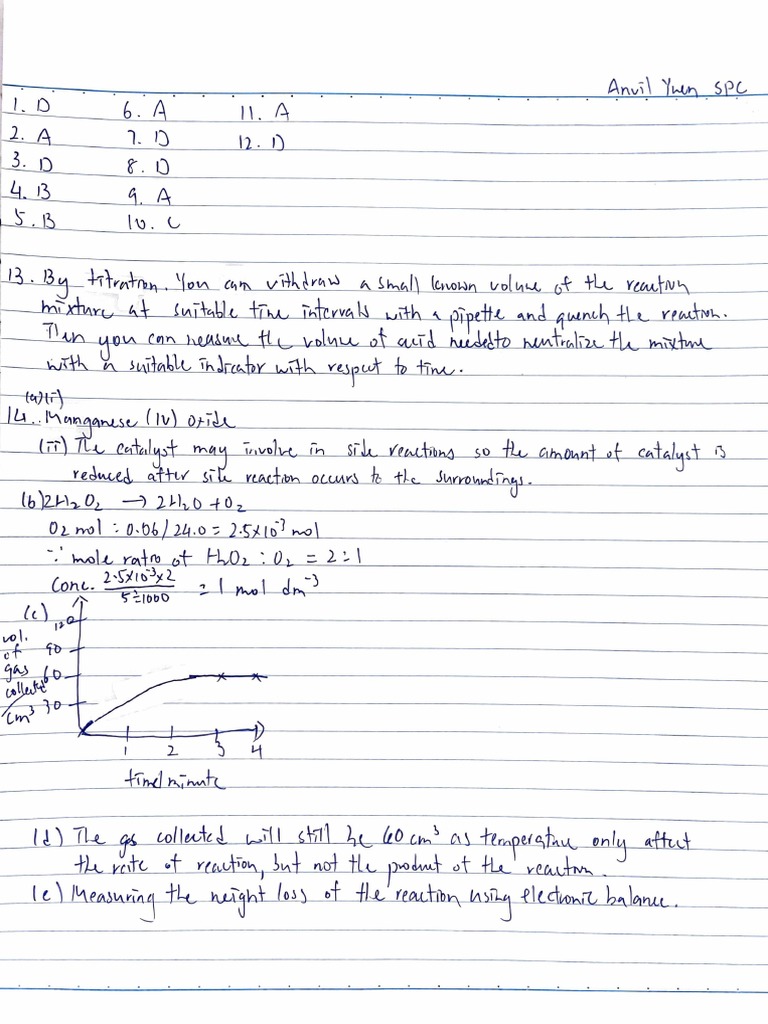 Anvil Yuen SPC
1. D 6. A 11. A
2. A 7. D 12. D
3. D 8. D
4. B 9. A
5. B 10. C
13. By titration. You can withdraw a small known volume of the reaction
mixture at suitable time intervals with a pipette and quench the reaction.
Then you can measure the volume of acid needed to neutralize the mixture
with a suitable indicator with respect to time.
(a)(i)
14. Manganese (IV) oxide
(ii) The catalyst may involve in side reactions so the amount of catalyst is
reduced after side reaction occurs to the surroundings.
(b) 2H₂O₂ → 2H₂O + O₂
O₂ mol = 0.06/24.0 = 2.5×10⁻³ mol
∵ mole ratio of H₂O₂ : O₂ = 2:1
Conc. (2.5×10⁻³×2)/(5÷1000) = 1 mol dm⁻³
(c)
vol. of gas collected / cm³
120
90
60
30
1 2 3 4
time/minute
(d) The gas collected will still be 60 cm³ as temperature only affect
the rate of reaction, but not the product of the reaction.
(e) Measuring the weight loss of the reaction using electronic balance.